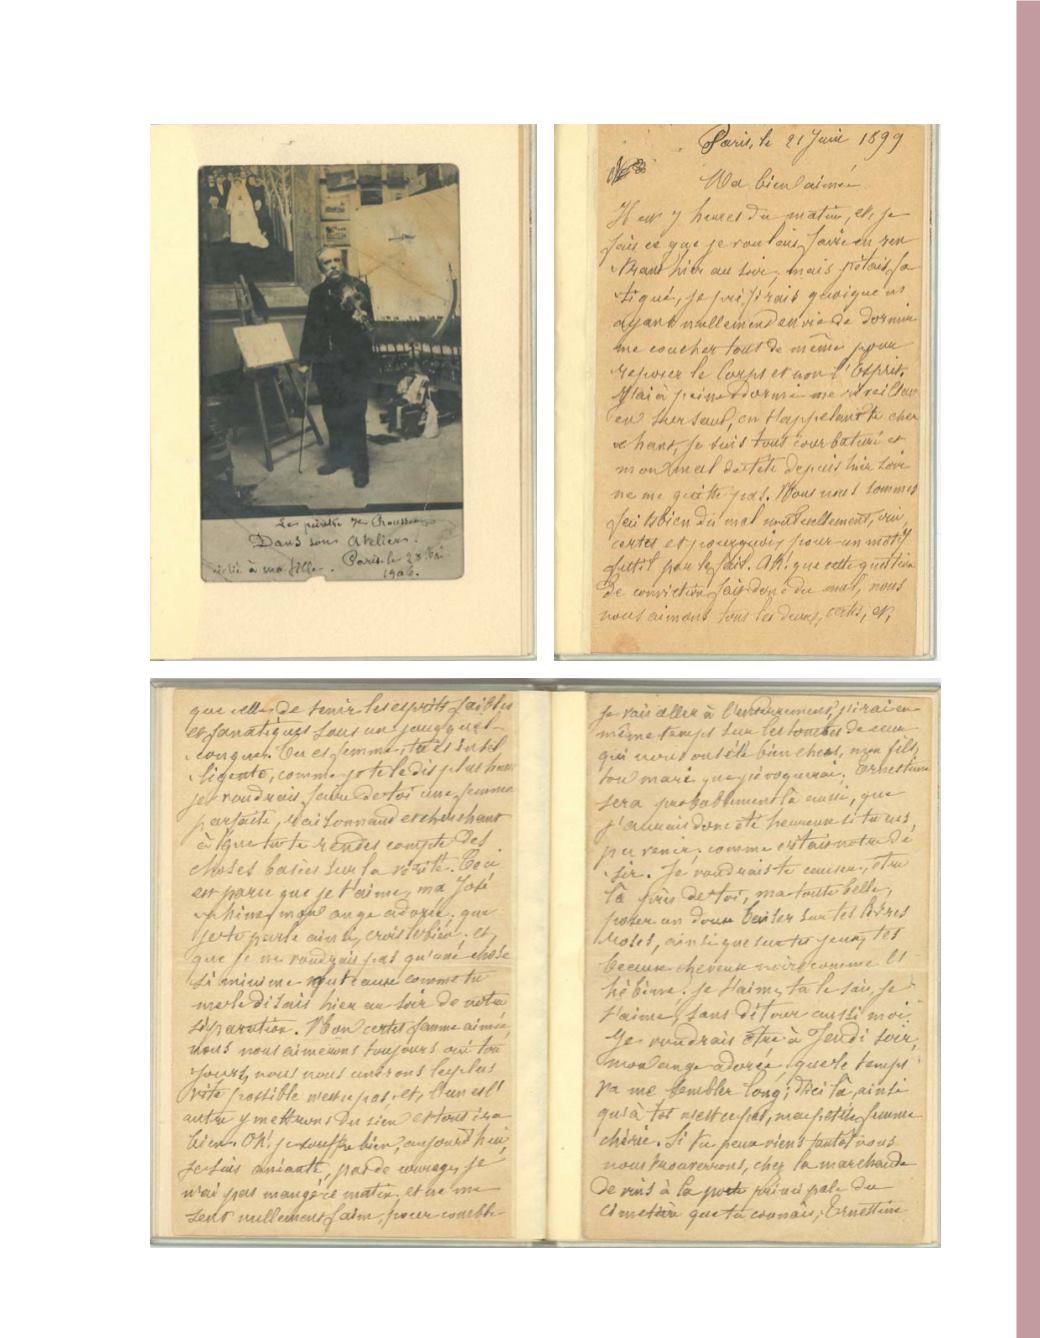 Le peintre
Dans son Atelier.
à ma fille. Paris le 23
1906.
Paris, le 21 Juin 1899
Ma bien aimée
Il est 7 heures du matin, et, je
fais ce que je voulais faire en ren
trant hier au soir, mais j'étais fa
tigué, je préférais quoique n'
ayant nullement envie de dormir
me coucher tout de même pour
reposer le Corps et non l'Esprit.
J'ai à peine dormi me réveillant
en sursaut, en t'appelant te cher
chant, je suis tout courbaturé et
mon mal de tête depuis hier soir
ne me quitte pas. Nous nous sommes
fait bien du mal mutuellement, oui,
certes et pourquoi, pour un motif
futil par le fait. Ah! que cette question
de conviction fait donc du mal, nous
nous aimons tous les deux, certes, et,
que celle de tenir les esprits faibles
et fanatiques sous un joug quel
conque. Tu es femme, tu es intel
ligente, comme je te le dis plus haut
je voudrais faire de toi une femme
parfaite, raisonnant et cherchant
à que tu te rendes compte des
choses basées sur la vérité. Ceci
est parce que je t'aime, ma José
phine, mon ange adorée, que
je te parle ainsi, crois le bien, et,
que je ne voudrais pas qu'une chose
si minime fut cause comme tu
me le disais hier au soir de notre
séparation. Non certes femme aimée,
nous nous aimerons toujours oui tou
jours, nous nous unirons le plus
vite possible n'est ce pas, et, l'un et l'
autre y mettrons du sien et tout ira
bien. Oh! je souffre bien, aujourd'hui,
je suis anéanti, pas de courage, je
n'ai pas mangé ce matin, et ne me
sent nullement faim, pour comble
je vais aller à l'enterrement, j'irai en
même temps sur les tombes de ceux
qui nous ont été bien chers, mon fils,
ton mari que j'évoquerai. Ernestine
sera probablement là aussi, que
j'aurais donc été heureux si tu eus
pu venir, comme c'était notre dé
sir. Je voudrais te causer, être
là près de toi, ma toute belle,
poser un doux baiser sur tes lèvres
roses, ainsi que sur tes yeux, tes
beaux cheveux noirs comme l'
ébène. Je t'aime, tu le sais, je
t'aime, sans détour aussi moi.
Je voudrais être à Jeudi soir,
mon ange adorée, que le temps
va me sembler long, d'ici là, ainsi
qu'à toi n'est ce pas, ma petite femme
chérie. Si tu peux viens tantôt nous
nous trouverons, chez la marchande
de vins à la porte principale du
cimetière que tu connais, Ernestine